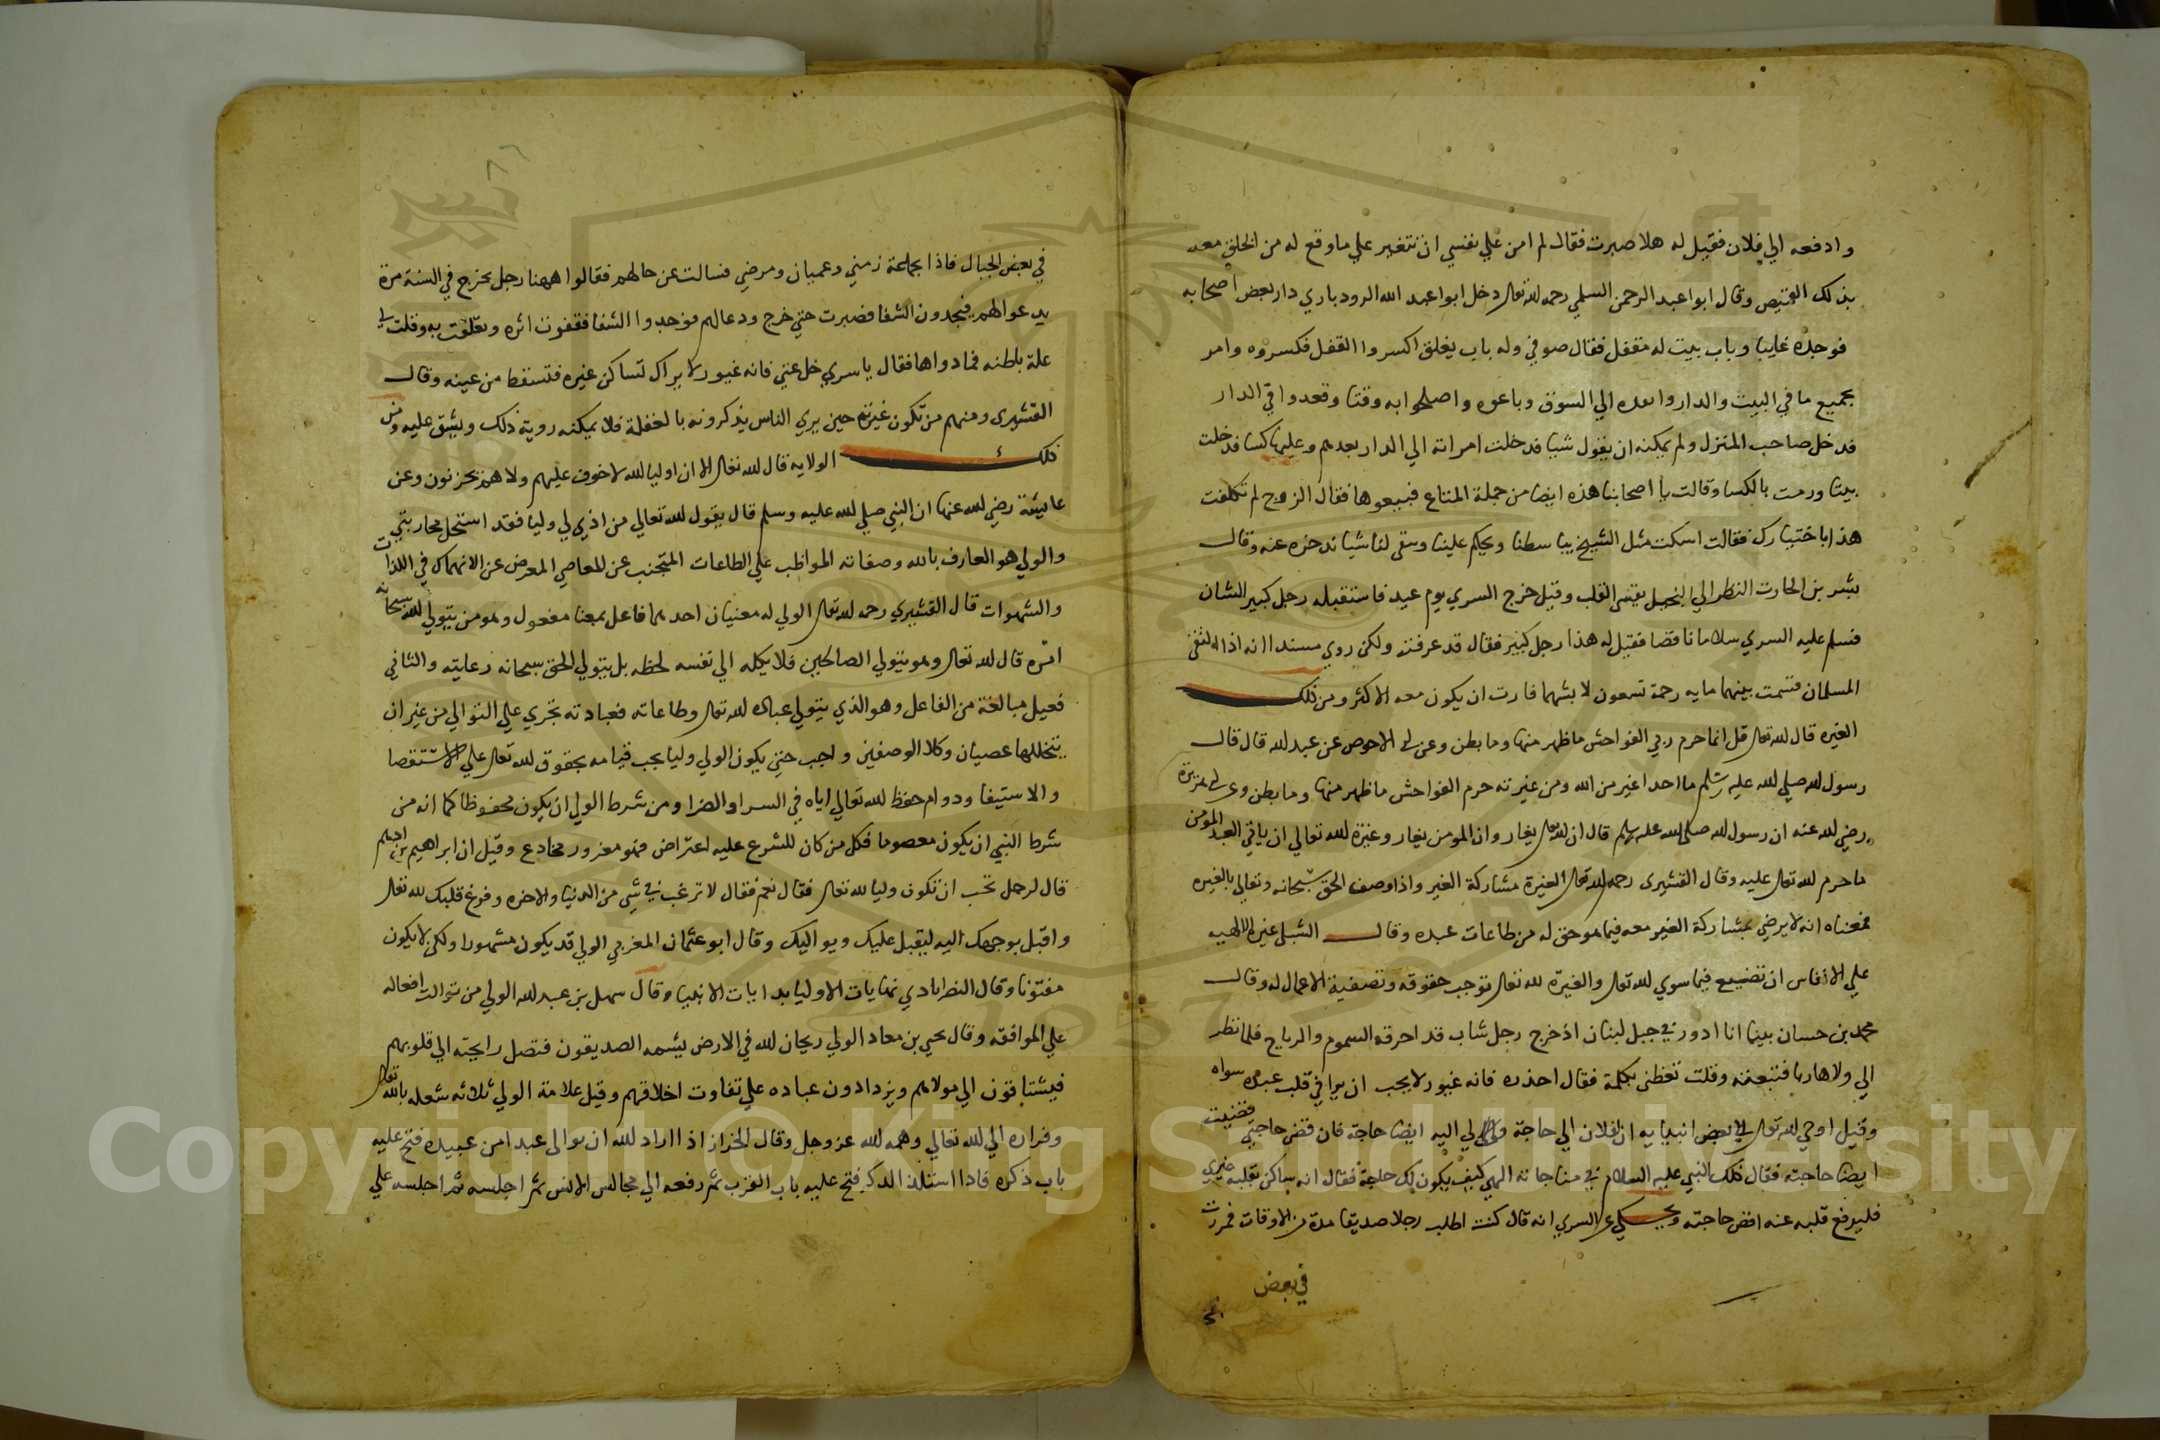 وادفعه الي فلان فقيل له هلا صبرت فقال لم امن علي نفسي ان تتغير علي ما وقع له من الخلق معه
بذلك القميص وقال ابوا عبد الرحمن السلمي رحمه الله تعالى دخل ابوا عبد الله الرودباري دار بعض اصحابه
فوجده غايبا وباب بيت له مقفل فقال صوفي وله باب يغلق اكسروا القفل فكسروه وامر
بجميع ما في البيت والدار وابعده الي السوق وباعوه واصلحوا به وقتا وقعدوا في الدار
فدخل صاحب المنزل ولم يمكنه ان يقول شيا فدخلت امراته الي الدار بعدهم وعليها كسا فدخلت
بيتا ورمت بالكسا وقالت يا اصحابنا هذه ايضا من جملة المتاع فبيعوها فقال الزوج لم تكلفت
هذا باختيارك فقالت اسكت مثل الشيخ يباسطنا ويحكم علينا ويبقى لنا شيا ندخره عنه وقال
بشر بن الحارث النظر الي البخيل يقسي القلب وقيل خرج السري يوم عيد فاستقبله رجل كبير الشان
فسلم عليه السري سلاما ناقصا فقيل له هذا رجل كبير فقال قد عرفته ولكن روي مسندا انه اذا التقى
المسلمان قسمت بينهما مايه رحمة تسعون لابشهما فاردت ان يكون معه الاكثر ومن ذلك
الغيره قال الله تعالى قل انما حرم ربي الفواحش ما ظهر منها وما بطن وعن ابي الاحوص عن عبد الله قال قال
رسول الله صلي الله عليه وسلم ما احد اغير من الله ومن غيرته حرم الفواحش ما ظهر منها وما بطن وعن ابي هريرة
رضي الله عنه ان رسول الله صلى الله عليه وسلم قال ان الله تعالى يغار وان المومن يغار وغيرة الله تعالي ان ياتي العبد المومن
ما حرم الله تعالى عليه وقال القشيري رحمه الله تعالى الغيرة مشاركة الغير واذا وصف الحق سبحانه وتعالي بالغيره
فمعناه انه لا يرضي بمشاركة الغير معه فيما هو حق له من طاعات عبده وقال الشبلي غيرة الالهيه
علي الانفاس ان تضيع فيما سوي الله تعالى والغيرة لله تعالى توجب حقوقه وتصفية الاعمال له وقال
محمد بن حسان بينما انا ادور في جبل لبنان اذ خرج رجل شاب قد احرقه السموم والرياح فلما نظر
الي ولا هاربا فتبعته وقلت تعظني بكلمة فقال احذره فانه غيور لا يحب ان يرا في قلب عبده سواه
وقيل اوحي الله تعالى الي بعض انبيايه ان لفلان الي حاجة ولي اليه ايضا حاجة فان قضي حاجتي قضيت
ايضا حاجته فقال ذلك النبي عليه السلام في مناجاته الهي كيف يكون لك حاجة فقال انه ساكن بقلبه غيري
فليرفع قلبه عنه اقض حاجته ويحكي عن السري انه قال كنت اطلب رجلا صديقا مدة من الاوقات فمررت
في بعض
٨٦
في بعض الجبال فاذا بجماعة زمني وعميان ومرضي فسالت عن حالهم فقالوا ههنا رجل يخرج في السنة مرة
يدعوا لهم فيجدون الشفا فصبرت حتي خرج ودعا لهم فوجدوا الشفا فقفوت اثره وتعلقت به وقلت لي
علة باطنه فما دواها فقال يا سري خل عني فانه غيور لا يراك تساكن غيره فتسقط من عينه وقال
القشيري ومنهم من تكون غيرته حين يري الناس يذكرونه بالغفلة فلا يمكنه روية ذلك ويشق عليه ومن
ذلك الولايه قال الله تعالى الا ان اوليا الله لا خوف عليهم ولا هم يحزنون وعن
عايشة رضي الله عنها ان النبي صلي الله عليه وسلم قال يقول الله تعالي من اذي لي وليا فقد استحل محاربتي
والولي هو العارف بالله وصفاته المواظب علي الطاعات المتجنب عن المعاصي المعرض عن الانهماك في اللذات
والشهوات قال القشيري رحمه الله تعالى الولي له معنيان احدهما فاعل بمعنا مفعول وهو من يتولي الله سبحانه
امره قال الله تعالى وهو يتولي الصالحين فلا يكله الي نفسه لحظه بل يتولي الحق سبحانه رعايته والثاني
فعيل مبالغة من الفاعل وهو الذي يتولي عباده الله تعالى وطاعاته فعبادته تجري علي التوالي من غير ان
يتخللها عصيان وكلا الوصفين واجب حتي يكون الولي وليا يجب قيامه بحقوق الله تعالى علي الاستقصا
والاستيفا ودوام حفظ الله تعالي اياه في السرا والضرا ومن شرط الولي ان يكون محفوظا كما انه من
شرط النبي ان يكون معصوما فكل من كان للشرع عليه اعتراض فهو مغرور مخادع وقيل ان ابراهيم بن ادهم
قال لرجل تحب ان تكون وليا لله تعالى فقال نعم فقال لا ترغب في شي من الدنيا والاخره وفرغ قلبك لله تعالى
واقبل بوجهك اليه ليقبل عليك ويواليك وقال ابو عثمان المغربي الولي قد يكون مشهورا ولكن لا يكون
مفتونا وقال النصراباذي نهايات الاوليا بدايات الانبيا وقال سهل بن عبد الله الولي من توالت افعاله
علي الموافقه وقال يحيي بن معاد الولي ريحان الله في الارض يشمه الصديقون فتصل رايحته الي قلوبهم
فيشتاقون الي مولاهم ويزدادون عباده علي تفاوت اخلاقهم وقيل علامة الولي ثلاثه شغله بالله تعالى
وفراره الي الله تعالي وهمه الله عز وجل وقال الخراز اذا اراد الله ان يوالى عبدا من عبيده فتح عليه
باب ذكره فاذا استلذ الذكر فتح عليه باب القرب ثم رفعه الي مجالس الانس ثم اجلسه ثم اجلسه علي
Copyright © King Saud University